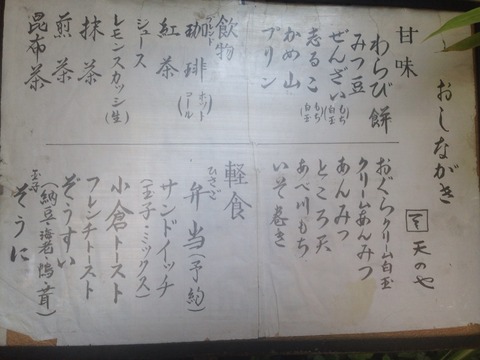 おしながき
天のや
甘味
わらび餅
みつ豆
ぜんざい(もち 白玉)
志るこ(もち 白玉)
かめ山
プリン
おぐらクリーム白玉
クリームあんみつ
あんみつ
ところ天
あべ川もち
いそ巻き
飲物
珈琲(ホット コール)
紅茶
ジュース
レモンスカッシュ(生)
抹茶
煎茶
昆布茶
軽食
ひさご弁当(予約)
サンドイッチ
(玉子・ミックス)
小倉トースト
フレンチトースト
ぞうすい
(納豆・海老・鴨・茸)
玉子
ぞうに